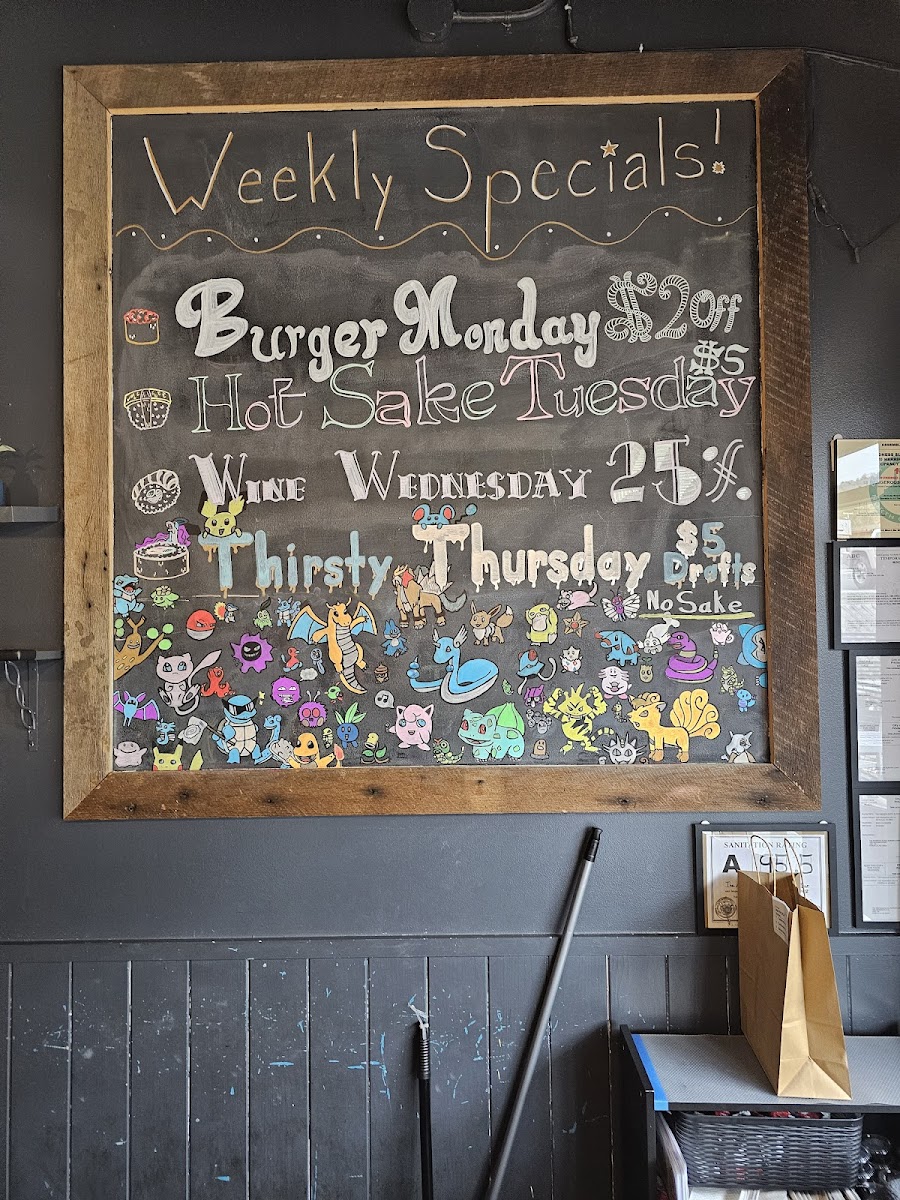 Weekly Specials!
Burger Monday $2 Off
Hot Sake Tuesday $5
Wine Wednesday 25%
Thirsty Thursday $5 Drafts
No Sake
SANITATION RATING
A 95.5